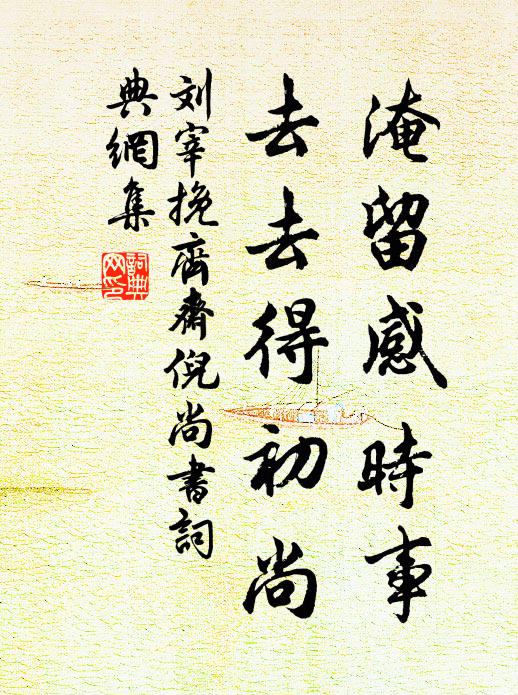 淹留感時事
去去得初尚
刘宰挽齊齋倪尚書詞
典網集
詞典
网印